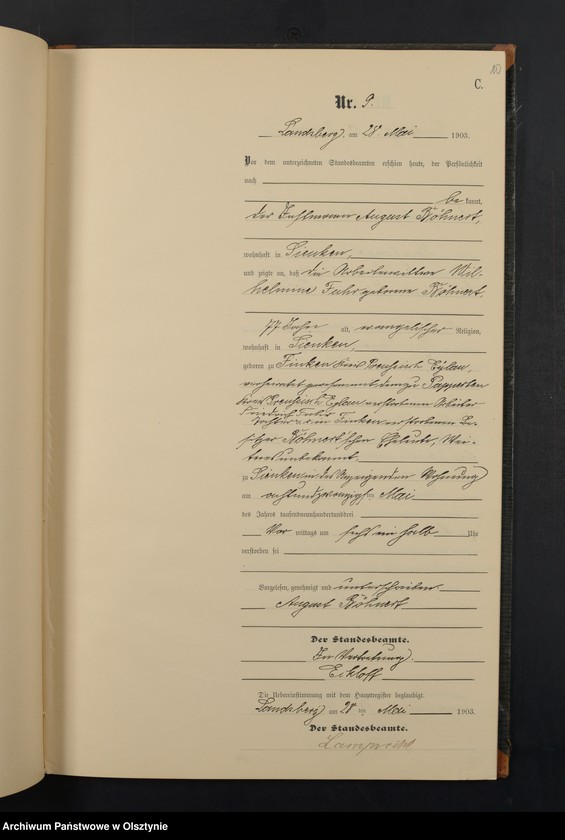 10
C.
Nr. 9.
Landsberg, am 28. Mai 1903.
Vor dem unterzeichneten Standesbeamten erschien heute, der Persönlichkeit
nach
be kannt,
der Instmann August Böhnert,
wohnhaft in Sienken,
und zeigte an, daß die Arbeiterwittwe Wil-
helmine Fuhr geborene Böhnert,
77 Jahre alt, evangelischer Religion,
wohnhaft in Sienken,
geboren zu Finken Kreis Preußisch Eylau,
verheiratet gewesen mit dem zu Papperten
Kreis Preußisch Eylau verstorbenen Arbeiter
Friedrich Fuhr
Tochter der in Finken verstorbenen Be-
sitzer Böhnert'schen Eheleute, Wei-
teres unbekannt.
zu Sienken in des Anzeigenden Wohnung
am achtundzwanzigsten Mai
des Jahres tausendneunhundertunddrei
Vor mittags um sechs ein halb Uhr
verstorben sei
Vorgelesen, genehmigt und unterschrieben
August Böhnert
Der Standesbeamte.
In Vertretung.
Eichloff
Die Uebereinstimmung mit dem Hauptregister beglaubigt.
Landsberg, am 28 ten Mai 1903.
Der Standesbeamte.
Archiwum Państwowe w Olsztynie